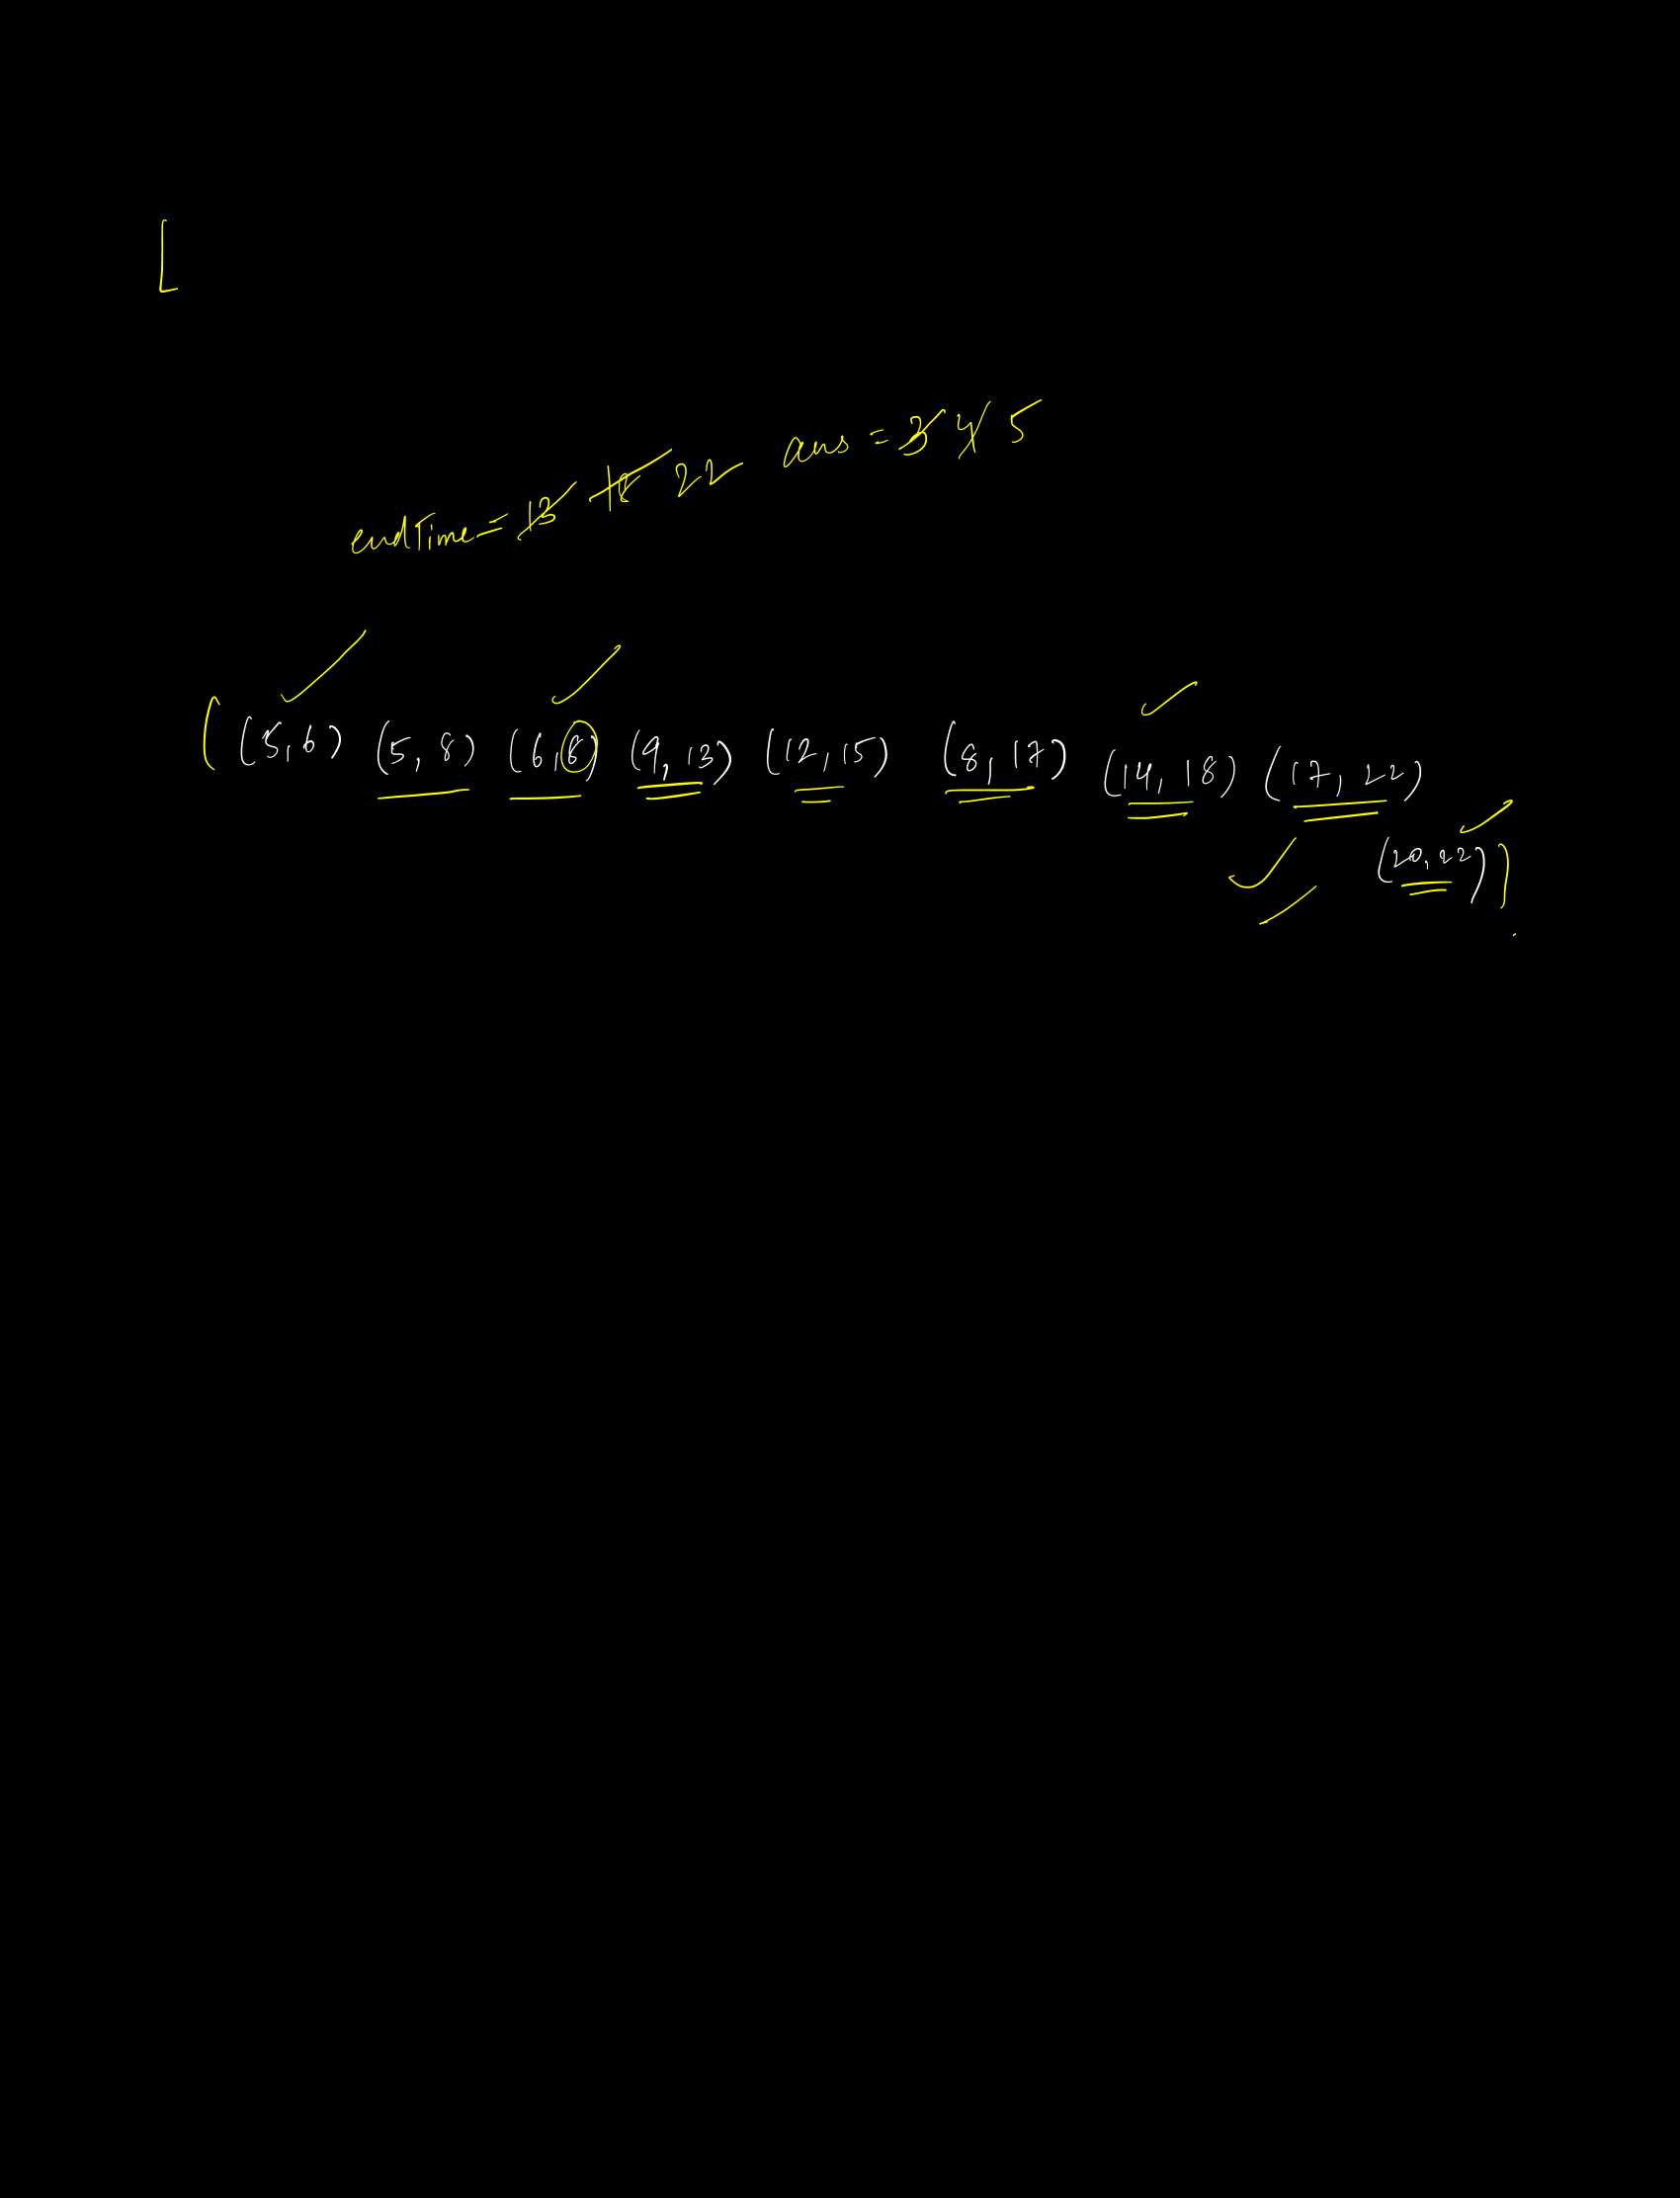 [
endTime = 13 18 22 ans = 3 4 5
( (5,6) (5,8) (6,8) (9,13) (12,15) (8,17) (14,18) (17,22)
(20,22) )